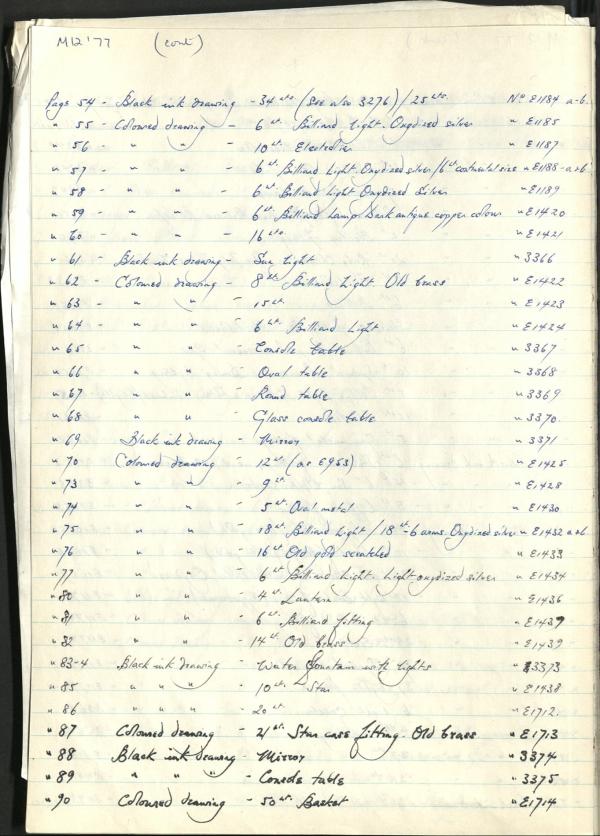 M12'77 (cont)
Page 54 - Black ink drawing - 34 lts. (See also 3276) / 25 lts. No E1184 a-b.
" 55 - Coloured drawing - 6 lt. Billiard Light. Oxydized silver " E1185
" 56 - " " - 10 lt. Electrolier " E1187
" 57 - " " - 6 lt. Billiard Light. Oxydized silver / 6 lt. continental size " E1188 - a+b
" 58 - " " - 6 lt. Billiard Light Oxydized Silver " E1189
" 59 - " " - 6 lt. Billiard Lamp. Dark antique copper colour " E1420
" 60 - " " - 16 lts. " E1421
" 61 - Black ink drawing - Sun Light " 3366
" 62 - Coloured drawing - 8 lt. Billiard Light Old brass " E1422
" 63 - " " - 15 lt. " E1423
" 64 - " " - 6 lt. Billiard Light " E1424
" 65 " " - Console table " 3367
" 66 " " - Oval table " 3368
" 67 " " - Round table " 3369
" 68 " " - Glass console table " 3370
" 69 Black ink drawing - Mirror " 3371
" 70 Coloured drawing - 12 lt. (as E953) " E1425
" 73 " " - 9 lt. " E1428
" 74 " " - 5 lt. Oval metal " E1430
" 75 " " - 18 lt. Billiard Light / 18 lt. - 6 arms. Oxydized silver " E1432 a+b
" 76 " " - 16 lt. Old gold scratched " E1433
" 77 " " - 6 lt. Billiard Light. Light oxydized silver " E1434
" 80 " " - 4 lt. Lantern " E1436
" 81 " " - 6 lt. Billiard fitting " E1437
" 82 " " - 14 lt. Old brass " E1439
" 83-4 Black ink drawing - Water Fountain with lights " 3373
" 85 " " " - 10 lt. Star " E1438
" 86 " " " - 20 lt. " E1712.
" 87 Coloured drawing - 21 lt. Star case fitting. Old brass " E1713
" 88 Black ink drawing - Mirror " 3374
" 89 " " " - Console table " 3375
" 90 Coloured drawing - 50 lt. Basket " E1714